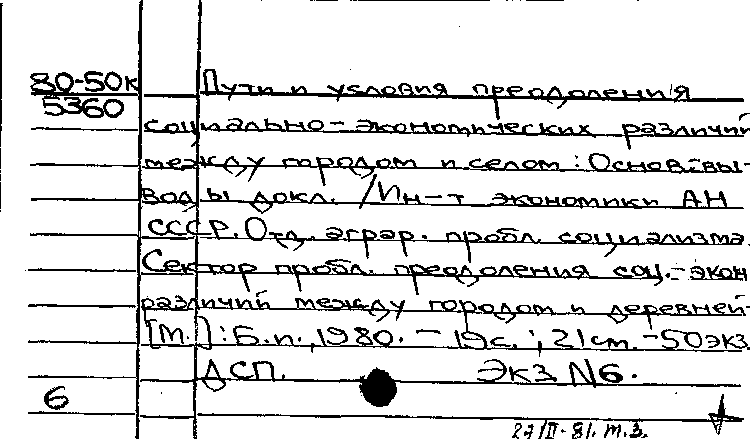 80-50к Пути и условия преодоления
5360
социально-экономических различий
между городом и селом : Основ. вы-
воды докл. /Ин-т экономики АН
СССР. Отд. аграр. пробл. социализма.
Сектор пробл. преодоления соц.-экон
различий между городом и деревней-
[М.] : Б.и., 1980. - 19с. ; 21см. - 50экз
ДСП. Экз N6.
6
27/II-81. т.з.